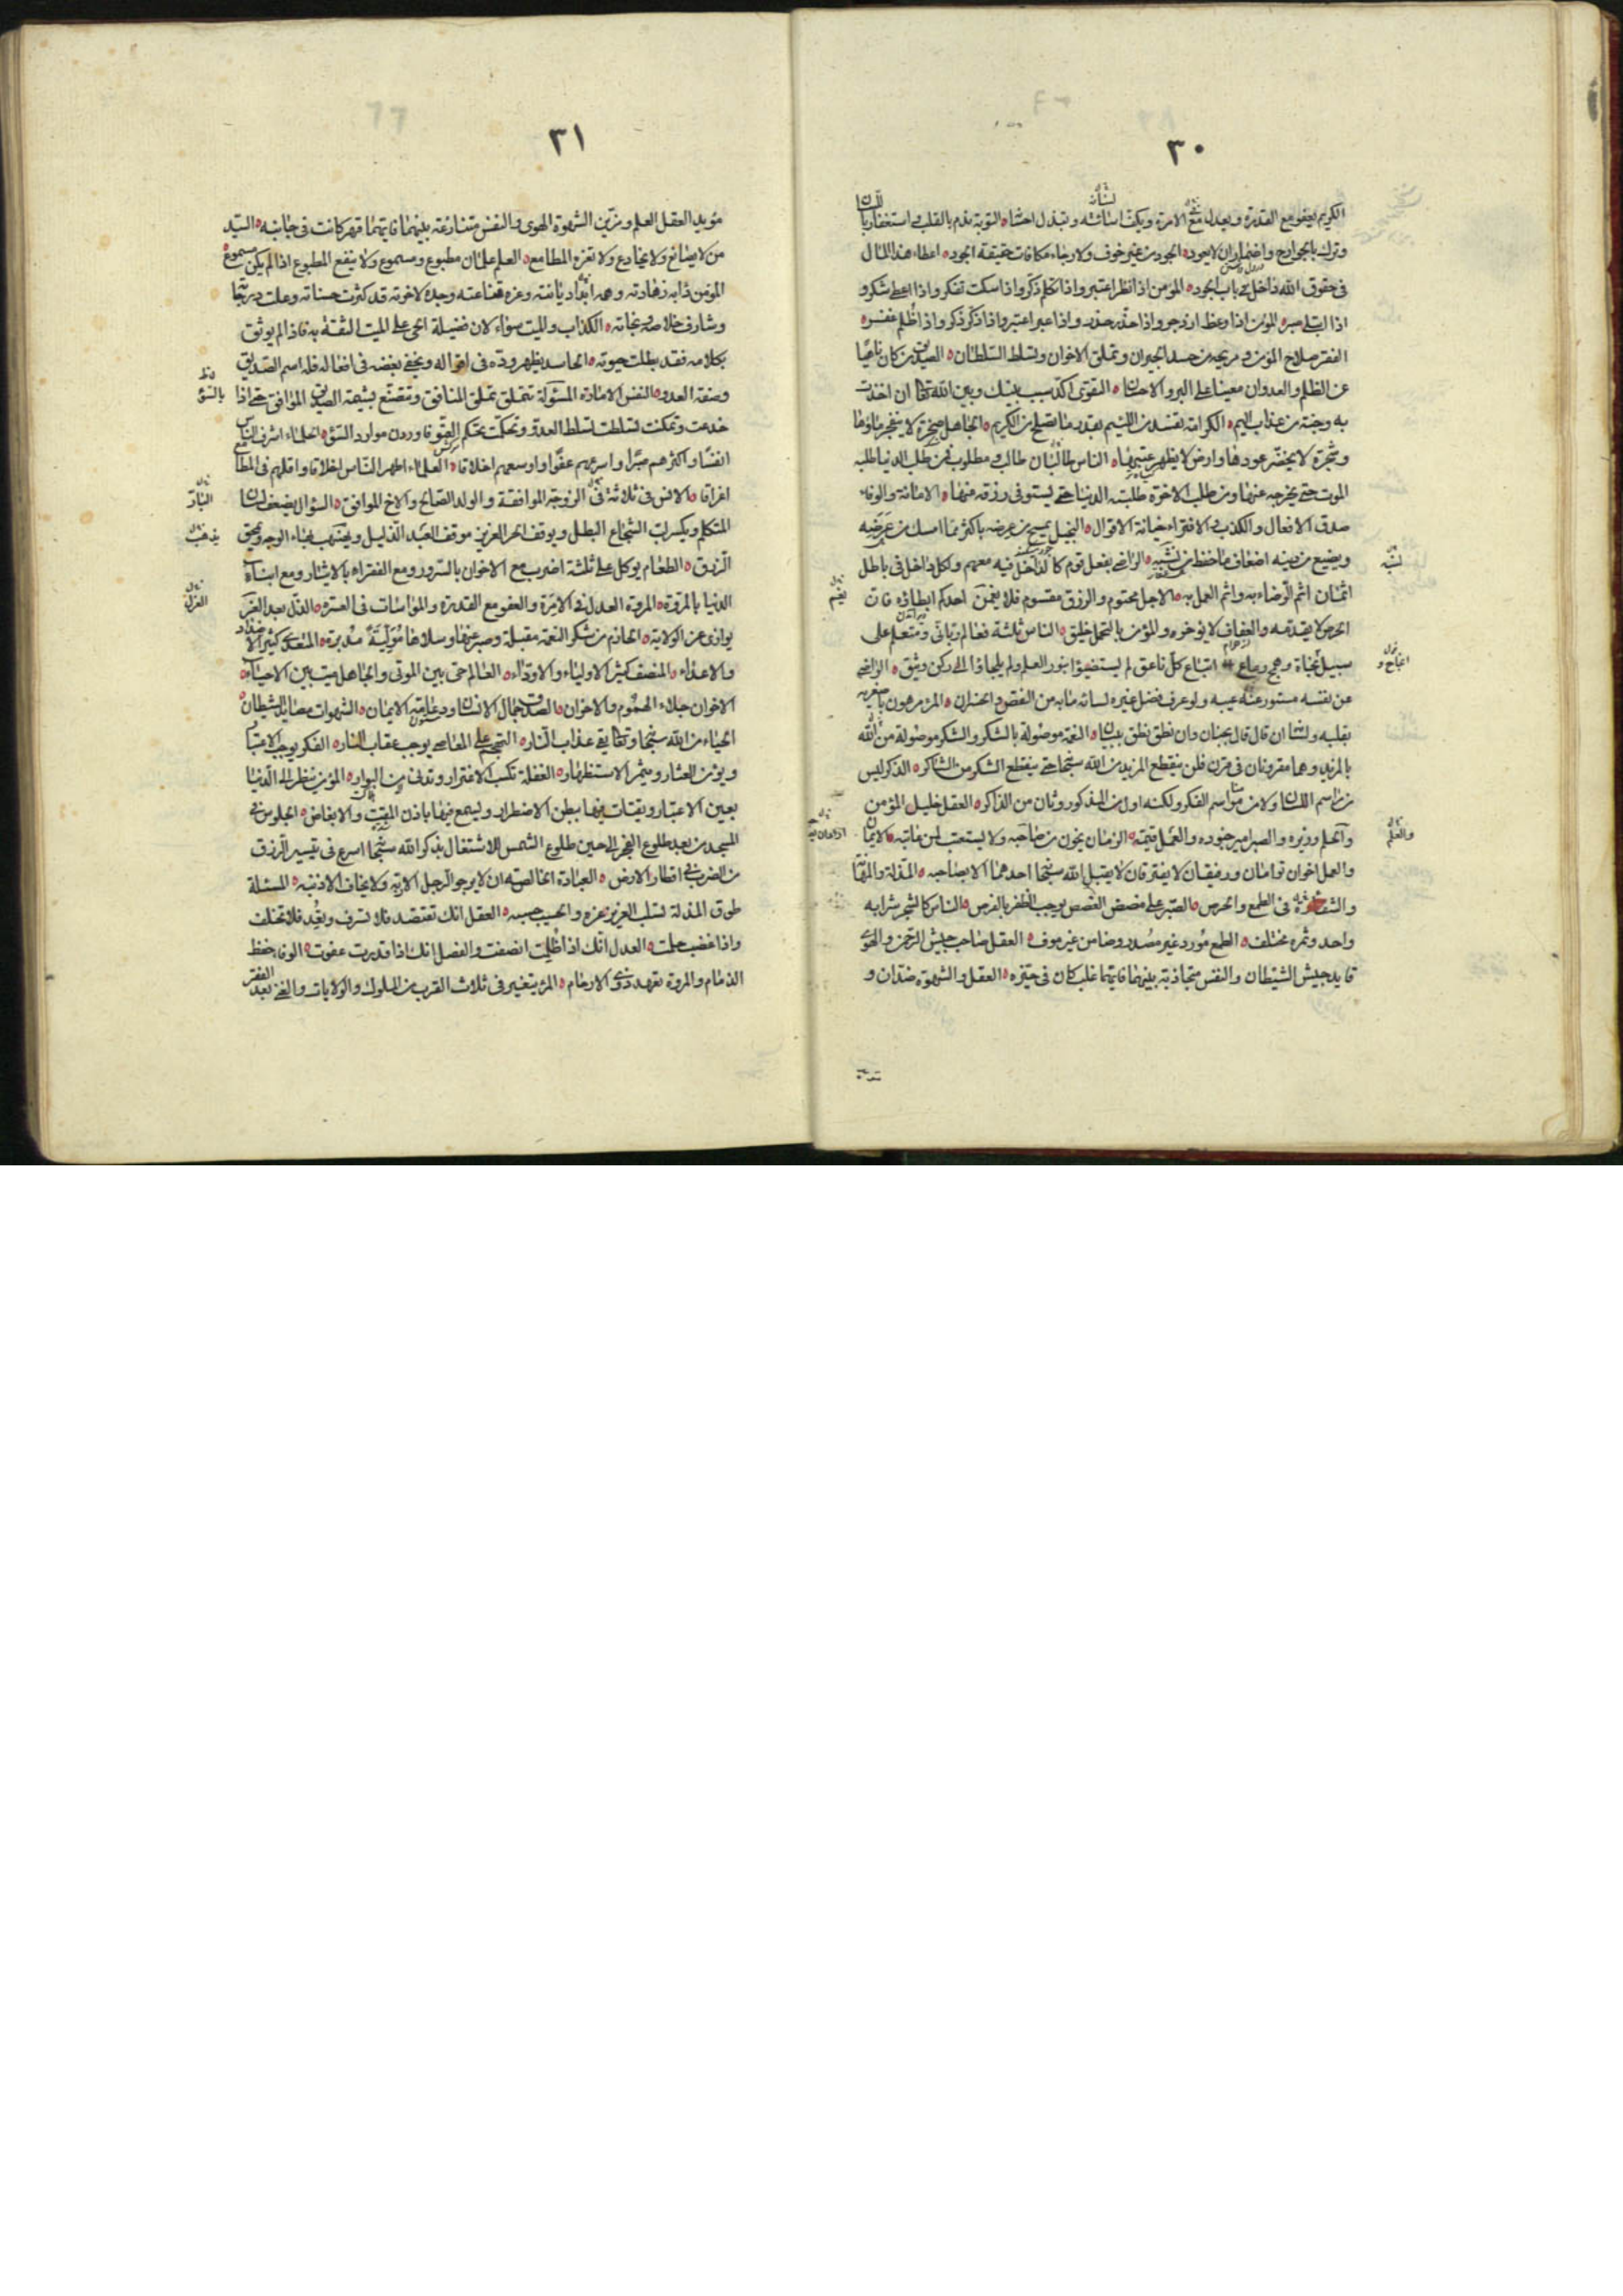 ٣٠
الكريم يعفو مع القدرة ويعدل مع الامرة ويكف اسائته ويبذل احسانه التوبة ندم بالقلب واستغفار باللسان
وترك بالجوارح واضمار ان لا يعود الجود من غير خوف ولا رجاء مكافات حقيقة الجود اعطاء هذا المال
فى حقوق الله داخل فى باب الجود المؤمن اذا نظر اعتبر واذا تكلم ذكر واذا سكت تفكر واذا اعطى شكر و
اذا ابتلى صبر المؤمن اذا وعظ ازدجر واذا حذر حذر واذا عبر اعتبر واذا ذكر ذكر واذا ظلم غفر
الفقر صلاح المؤمن و مريحه من حسد الجيران وتملق الاخوان وتسلط السلطان الصديق من كان ناهيا
عن الظلم والعدوان معينا على البر والاحسان التقوى اكد سبب بينك وبين الله تعالى ان اخذت
به وجنة من عذاب اليم الكرامة تفسد من اللئيم بقدر ما تصلح من الكريم الجاهل صخرة لا ينفجر ماؤها
وشجرة لا يخضر عودها وارض لا يظهر عشبها الناس طالبان طالب ومطلوب فمن طلب الدنيا طلبه
الموت حتى يخرجه عنها ومن طلب الاخرة طلبته الدنيا حتى يستوفى رزقه منها الامانة والوفاء
صدق الافعال والكذب والافتراء خيانة الاقوال البخيل يسمح من عرضه باكثر مما امسك من عرضه
ويضيع من دينه اضعاف ما حفظ من نشبه الراضى بفعل قوم كالداخل فيه معهم ولكل داخل فى باطل
اثمان اثم الرضاء به واثم العمل به الاجل محتوم والرزق مقسوم فلا يغمن احدكم ابطاؤه فان
الحرص لا يقدمه والعفاف لا يؤخره والمؤمن بالتحمل خليق الناس ثلثة فعالم ربانى ومتعلم على
سبيل نجاة وهمج رعاع اتباع كل ناعق لم يستضيؤا بنور العلم ولم يلجاؤا الى ركن وثيق الراضى
عن نفسه مستور عنه عيبه ولو عرف فضل غيره لساته ما به من النقص والخسران المرء باصغريه
بقلبه ولسانه ان قاتل قاتل بجنان وان نطق نطق ببيان النعمة موصولة بالشكر والشكر موصولة من الله
بالمزيد وهما مقرونان فى قرن فلن ينقطع المزيد من الله سبحانه حتى ينقطع الشكر من الشاكر الذكر ليس
من مراسم اللسان ولا من مناسم الفكر ولكنه اول من المذكور وثان من الذاكر العقل خليل المؤمن
والحلم وزيره والصبر امير جنوده والعمل قيمه الزمان يخون من صاحبه ولا يستعتب لمن عاتبه الايمان
والعمل اخوان توامان ورفيقان لا يفترقان لا يقبل الله سبحانه احدهما الا بصاحبه المذلة والمهانة
والشقاء فى الطمع والحرص الصبر على مضض الغصص يوجب الظفر بالفرص الناس كالشجر شرابه
واحد وثمره مختلف الطمع مورد غير مصدر وضامن غير موف العقل صاحب جيش الرحمن والهوى
قايد جيش الشيطان والنفس متجاذبة بينهما فايهما غلب كان فى حيزه العقل والشهوة ضدان و
٣١
مؤيد العقل العلم ومزين الشهوة الهوى والنفس متنازعة بينهما فايهما قهر كانت فى جانبه السيد
من لا يصانع ولا يخادع ولا تغره المطامع العلم علمان مطبوع ومسموع ولا ينفع المطبوع اذا لم يكن مسموع
المؤمن دابه زهادته وهمه ديانته وعزه قناعته وجده لاخرته قد كثرت حسناته وعلت درجاته
وشارف خلاصه ونجاته الكذاب والميت سواء لان فضيلة الحى على الميت الثقة به فاذا لم يوثق
بكلامه فقد بطلت حيوته الحاسد يظهر وده فى اقواله ويخفى بغضه فى افعاله فله اسم الصديق
وصفة العدو النفس الامارة المسولة تتملق تملق المنافق وتتصنع بشيمة الصديق الموافق حتى اذا
خدعت وتمكنت تسلطت تسلط العدو وتحكمت تحكم العتو فاوردت موارد السوء الحلماء اشرف الناس
انفسا واكثرهم صبرا واسرعهم عفوا واوسعهم اخلاقا العلماء اطهر الناس اخلاقا واقلهم فى المطامع
اعراقا الانس فى ثلاثة فى الزوجة الموافقة والولد الصالح والاخ الموافق السؤال يضعف لسان
المتكلم ويكسر قلب الشجاع البطل ويوقف الحر العزيز موقف العبد الذليل ويذهب بهاء الوجه ويمحق
الرزق الطعام يوكل على ثلثة اضرب مع الاخوان بالسرور ومع الفقراء بالايثار ومع ابناء
الدنيا بالمروة المروة العدل فى الامرة والعفو مع القدرة والمواسات فى العسرة الذل بعد العزل
يوازى عز الولاية الحازم من شكر النعمة مقبلة وصبر عنها وسلاها مولية مدبرة المتعدى كثير الاضداد
والاعداء المنصف كثير الاولياء والاوداء العالم حى بين الموتى والجاهل ميت بين الاحياء
الاخوان جلاء الهموم والاحزان الصدق جمال الانسان ودعامة الايمان الشهوات مصايد الشيطان
الحياء من الله سبحانه وتعالى يقى عذاب النار التهجم على المعاصى يوجب عقاب النار الفكر يوجب الاعتبار
ويؤمن العثار ويثمر الاستظهار الغفلة تكسب الاغترار وتدنى من البوار المؤمن ينظر الى الدنيا
بعين الاعتبار ويقتات فيها ببطن الاضطرار ويسمع فيها باذن المقت والابغاض الجلوس فى
المسجد من بعد طلوع الفجر الى حين طلوع الشمس للاشتغال بذكر الله سبحانه اسرع فى تيسير الرزق
من الضرب فى اقطار الارض العبادة الخالصة ان لا يرجو الرجل الا ربه ولا يخاف الا ذنبه المسئلة
طوق المذلة تسلب العزيز عزه والحسيب حسبه العقل انك تقتصد فلا تسرف وتعد فلا تخلف
واذا غضبت حلمت العدل انك اذا ظلمت انصفت والفضل انك اذا قدرت عفوت الوفاء حفظ
الذمام والمروة تعهد ذوى الارحام المرء يتغير فى ثلاث القرب من الملوك والولايات والغنى بعد الفقر